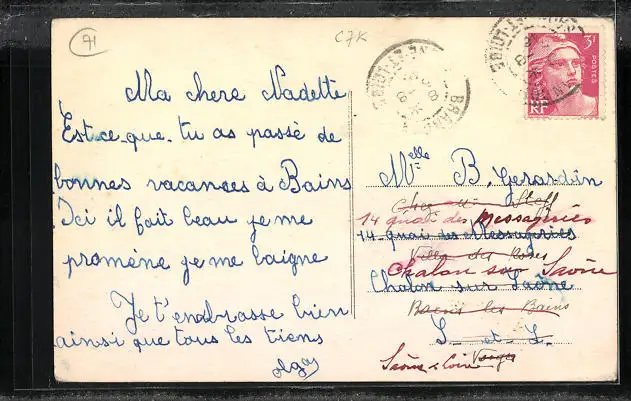 71
C7K
Ma chere Nadette
Est-ce-que tu as passé de
bonnes vacances à Bains
Ici il fait beau je me
promène je me baigne
Je t'embrasse bien
ainsi que tous les tiens
3F
POSTES
RF
Melle B. Gerardin
Chez Mr
14 quai des Messageries
14 Quai des Messageries
Villa des Roses
Chalon sur Saône
Chalon sur Saône
Bains les Bains
S. et L.
Saône & Loire Vosges